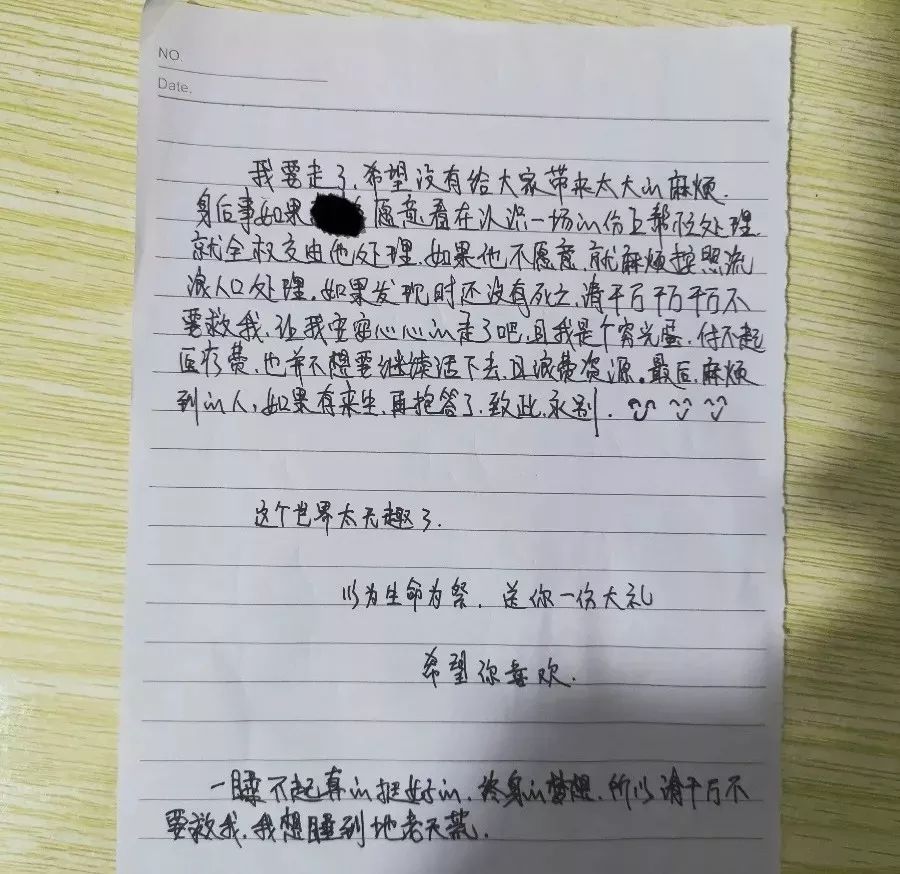 NO.
Date.
我要走了.希望没有给大家带来太大的麻烦.
身后事如果 愿意,看在认识一场的份上帮忙处理.
就全权交由他处理.如果他不愿意.就麻烦按照流
浪人口处理.如果发现时还没有死亡.请千万千万千万不
要救我.让我安安心心的走了吧.且我是个穷光蛋.付不起
医疗费.也并不想要继续活下去.且浪费资源。最后.麻烦
到的人.如果有来生.再抱答了.致此.永别.
这个世界太无趣了.
以为生命为祭.送你一份大礼
希望你喜欢.
一睡不起真的挺好的.终身的梦想.所以请千万不
要救我.我想睡到地老天荒.